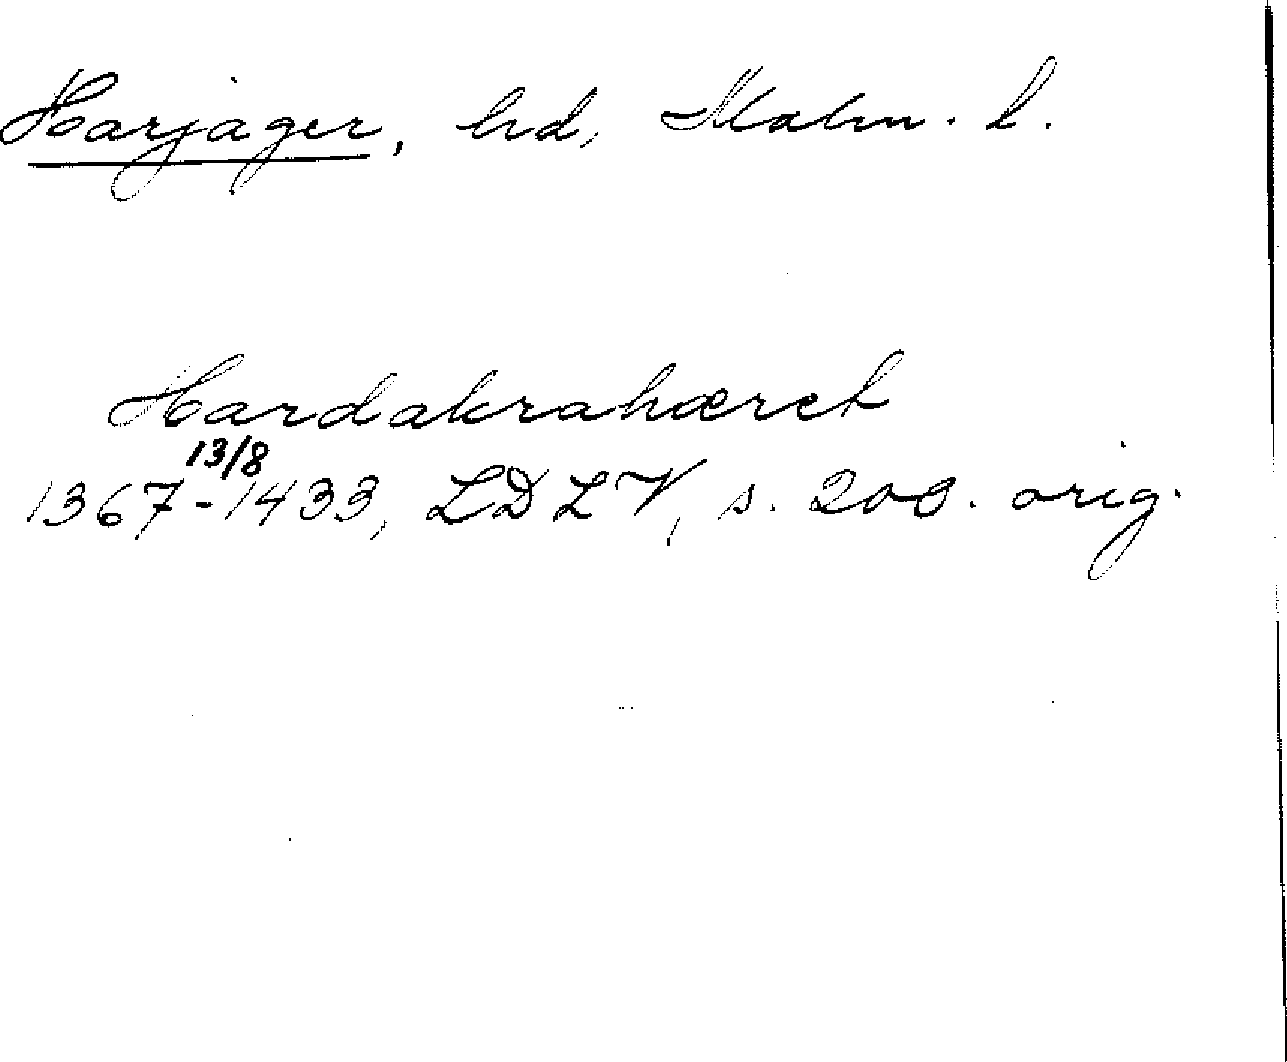 Harjager, hd, Malm. l.
Hardakrahæret
13/8
1367-1433, LDLV, s. 208. orig.